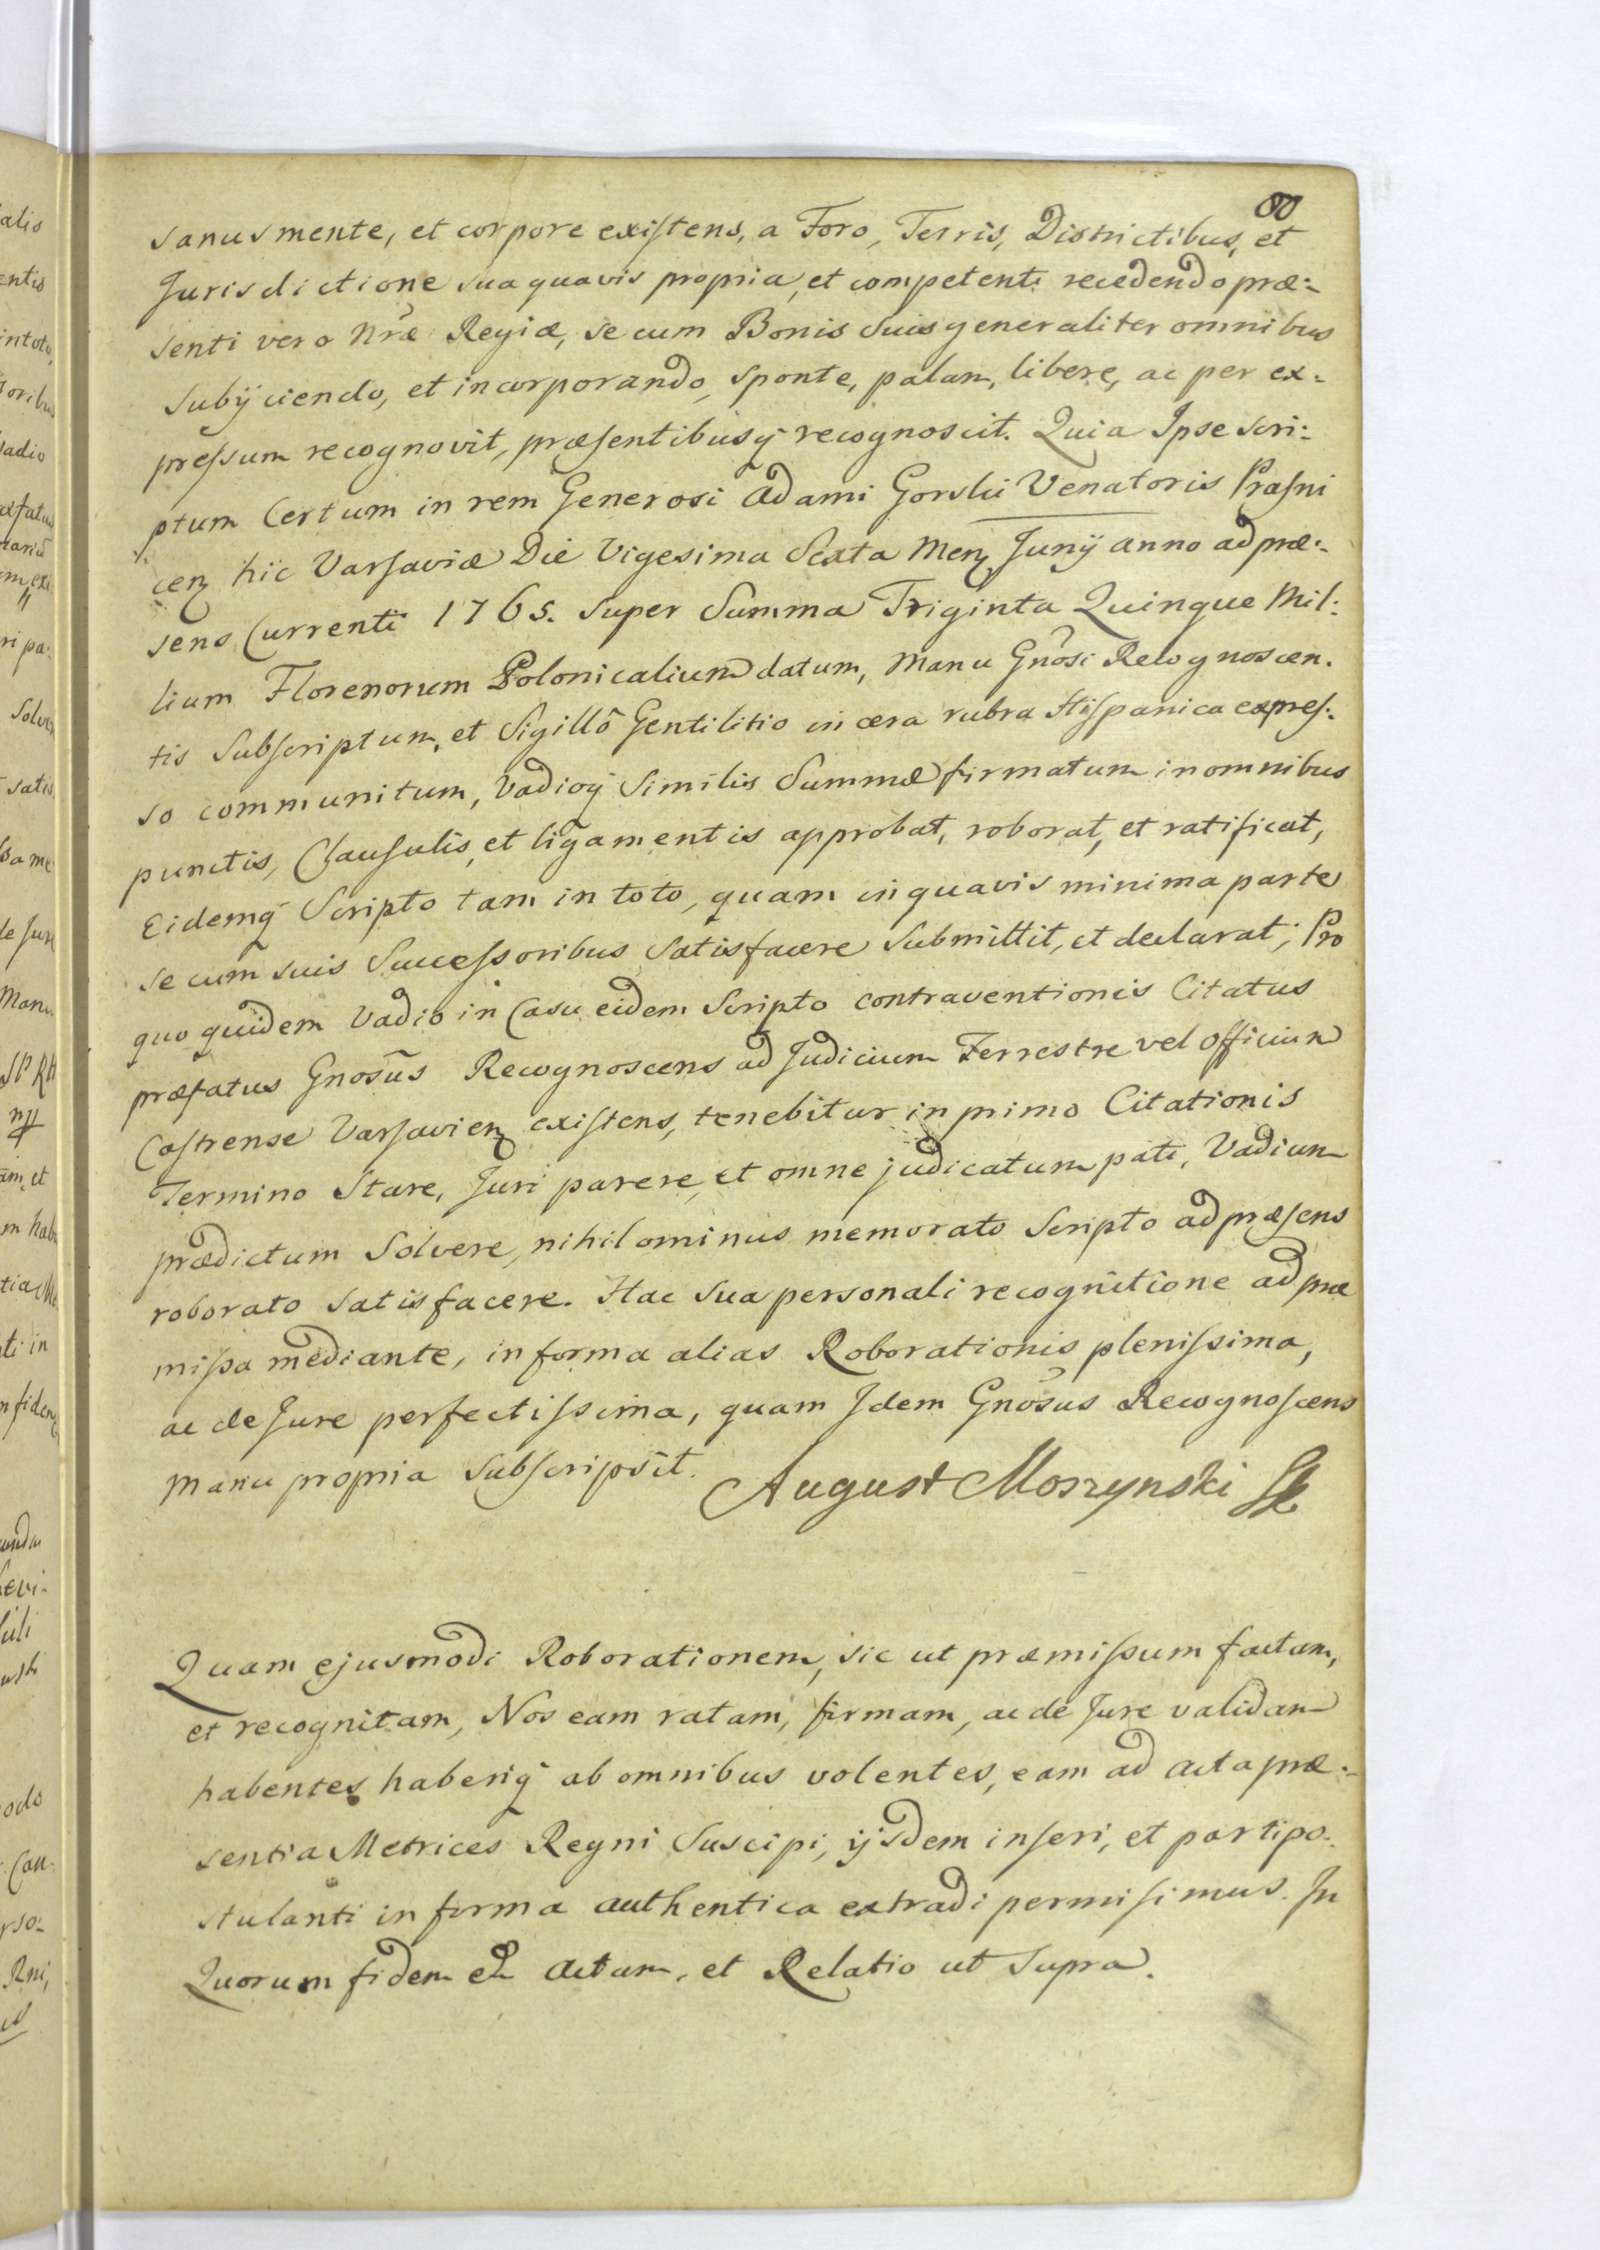 80
sanus mente, et corpore existens, a Foro, Terris, Districtibus, et
Jurisdictione sua quavis propria, et competenti recedendo præ:
senti vero Nræ Regiæ, se cum Bonis suis generaliter omnibus
subijciendo, et incorporando, sponte, palam, libere, ac per ex:
pressum recognovit, præsentibusq recognoscit. Quia Ipse scri:
ptum Certum in rem Generosi Adami Gorski Venatoris Prasni
cen hic Varsaviæ Die Vigesima Sexta Men Junij anno ad præ:
sens Currenti 1765. super Summa Triginta Quinque Mil:
lium Florenorum Polonicalium datum, Manu Gnosi Recognoscen.
tis Subscriptum, et Sigillo Gentilitio in cera rubra Hispanica expres:
so communitum, Vadioq Similis Summæ firmatum in omnibus
punctis, Clausulis, et ligamentis approbat, roborat, et ratificat,
Eidemq Scripto tam in toto, quam in quavis minima parte
se cum suis Successoribus Satisfacere Submittit, et declarat; Pro
quo quidem Vadio in Casu eidem Scripto contraventionis Citatus
præfatus Gnosus Recognoscens ad Judicium Terrestre vel Officium
Castrense Varsavien existens, tenebitur in primo Citationis
Termino Stare, Juri parere, et omne judicatum pati, Vadium
prædictum Solvere, nihilominus memorato Scripto ad præsens
roborato satisfacere. Hac Sua personali recognitione ad præ
missa mediante, in forma alias Roborationis plenissima,
ac de Jure perfectissima, quam Idem Gnosus Recognoscens
Manu propria Subscripsit. August Moszynski
Quam ejusmodi Roborationem, sic ut præmissum factam,
et recognitam, Nos eam ratam, firmam, ac de Jure validam
habentes haberiq ab omnibus volentes, eam ad acta præ:
sentia Metrices Regni Suscipi, ijsdem inseri, et parti po:
stulanti in forma authentica extradi permisimus. In
Quorum fidem Actum, et Relatio ut supra.